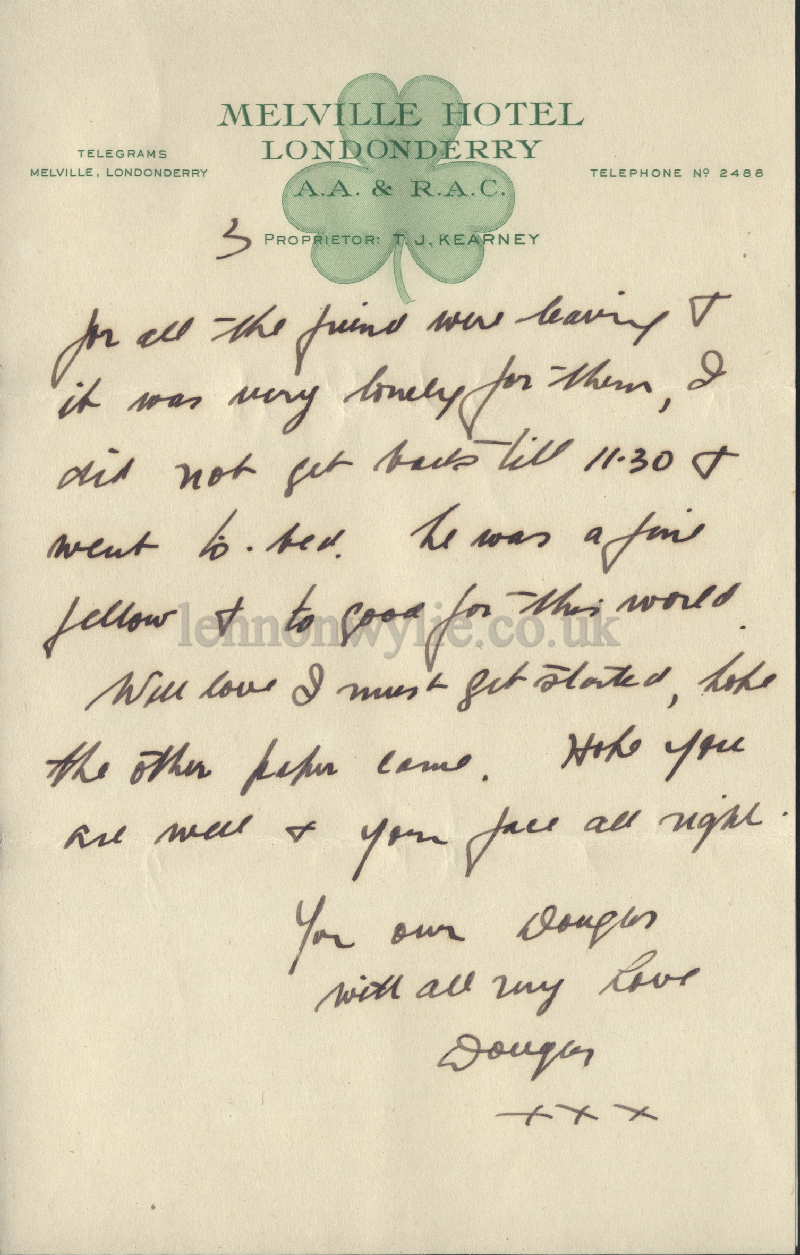 MELVILLE HOTEL
LONDONDERRY
TELEGRAMS
MELVILLE, LONDONDERRY
TELEPHONE Nº 2488
A.A. & R.A.C.
3
PROPRIETOR: T. J. KEARNEY
for all the friend were leaving &
it was very lonely for them, I
did not get back till 11.30 &
went to bed. he was a fine
fellow & to good for this world.
lennonwylie.co.uk
Well love I must get started, hope
the other paper came. Hope you
are well & your face all right.
Your own Douglas
with all my Love
Douglas
x x x